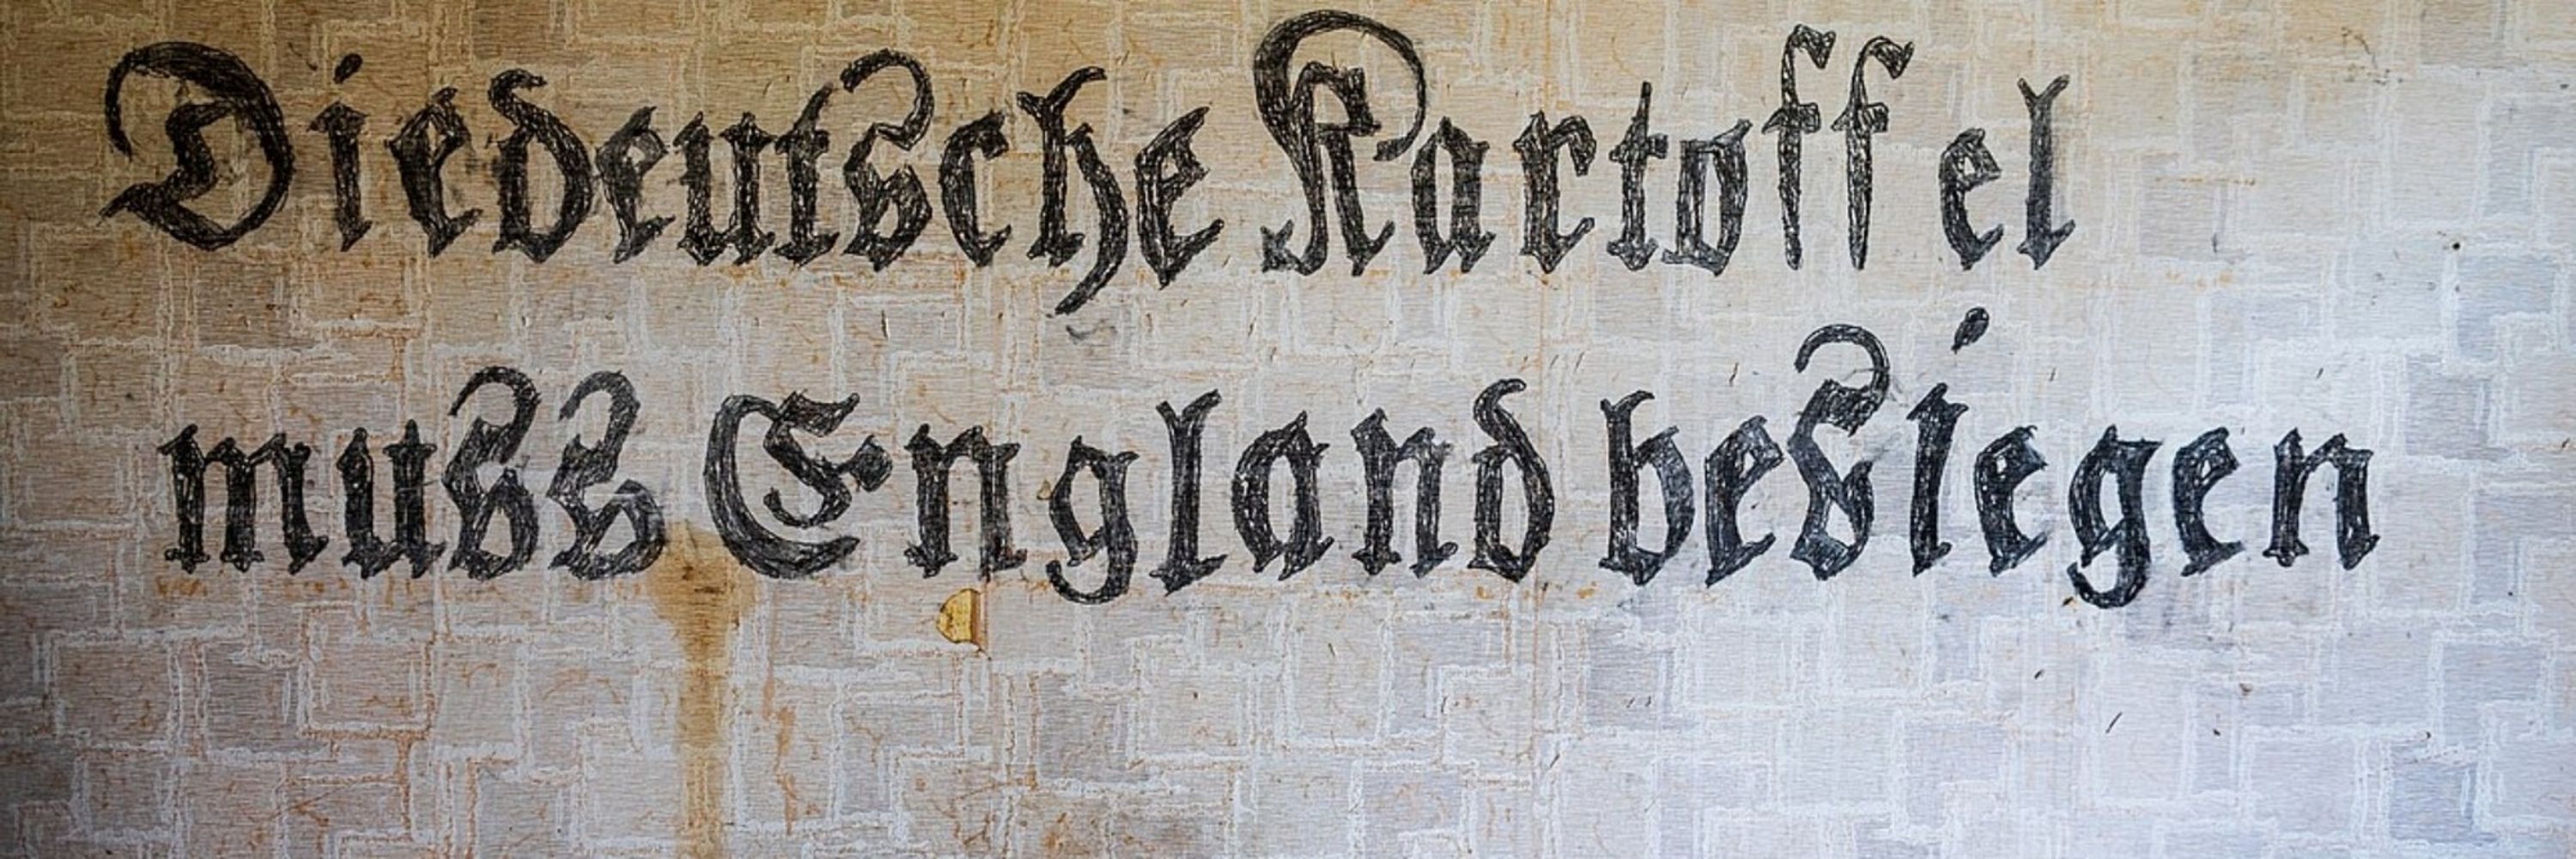 Die deutsche Kartoffel
muss England besiegen